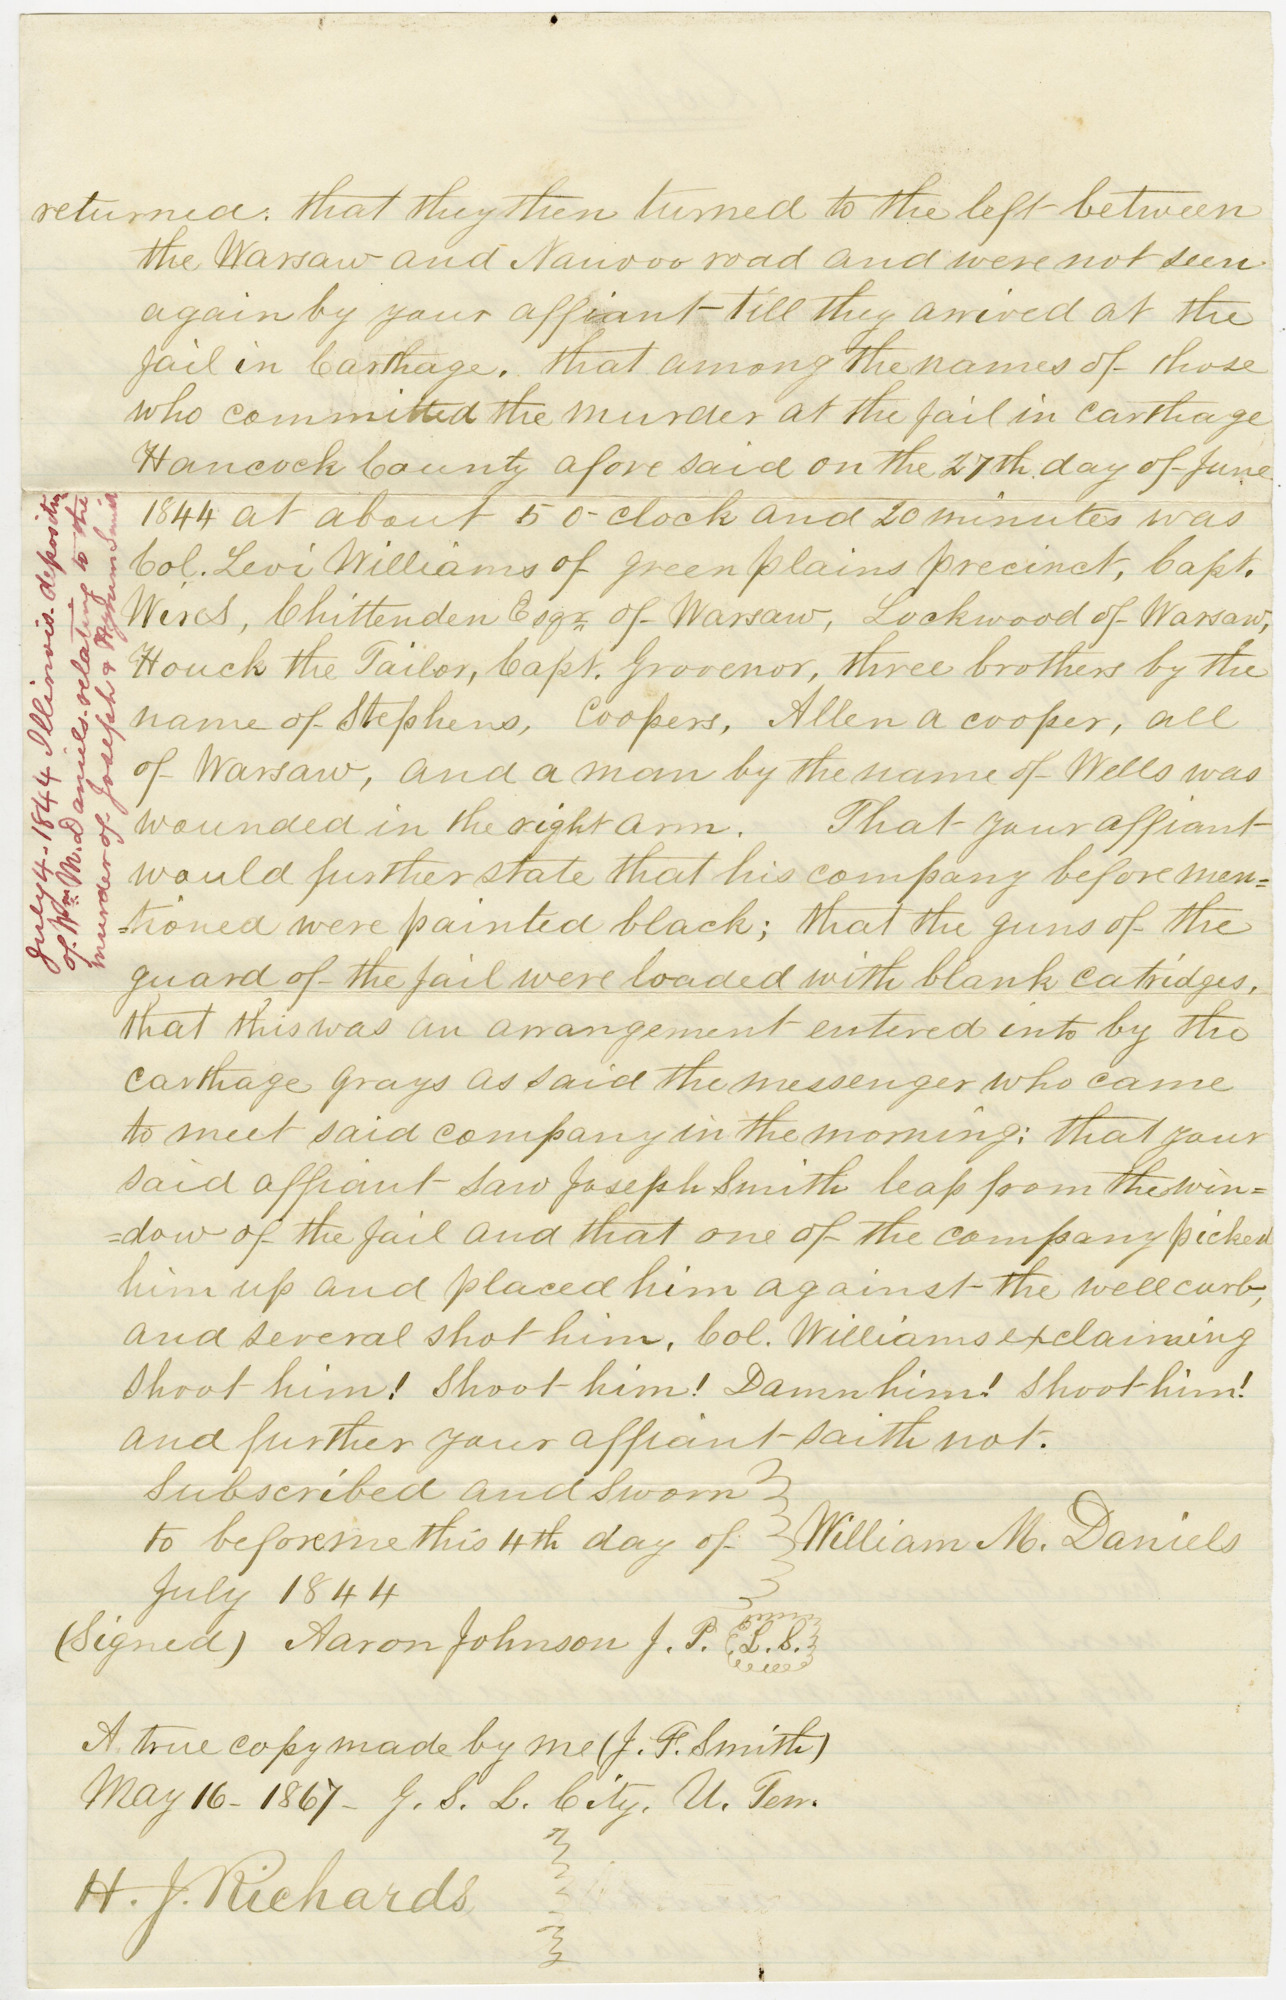 returned. that they then turned to the left between
the Warsaw and Nauvoo road and were not seen
again by your affiant till they arrived at the
jail in Carthage. that among the names of those
who committed the murder at the jail in carthage
Hancock County afore said on the 27th day of June
1844 at about 5 o-clock and 20 minutes was
Col. Levi Williams of green plains precinct, Capt.
Wires, Chittenden Esqr of Warsaw, Lockwood of Warsaw,
Houck the Tailor, Capt. Grovenor, three brothers by the
name of Stephens, Coopers, Allen a cooper, all
of Warsaw, and a man by the name of Wells was
wounded in the right arm. That your affiant
would further state that his company before men=
=tioned were painted black; that the guns of the
guard of the jail were loaded with blank catridges,
that this was an arrangement entered into by the
carthage grays as said the messenger who came
to meet said company in the morning: that your
said affiant saw Joseph Smith leap from the win=
=dow of the jail and that one of the company picked
him up and placed him against the well curb,
and several shot him, Col. Williams exclaiming
shoot him! shoot him! Damn him! shoot him!
and further your affiant saith not.
Subscribed and sworn
to before me this 4th day of William M. Daniels
July 1844
(Signed) Aaron Johnson J. P. L. S.
A true copy made by me (J. F. Smith)
May 16- 1867- G. S. L. City. U. Terr.
H. J. Richards
July 4- 1844- Illinois- deposition
of Wm M. Daniels- relating to the
murder of Joseph & Hyrum Smith